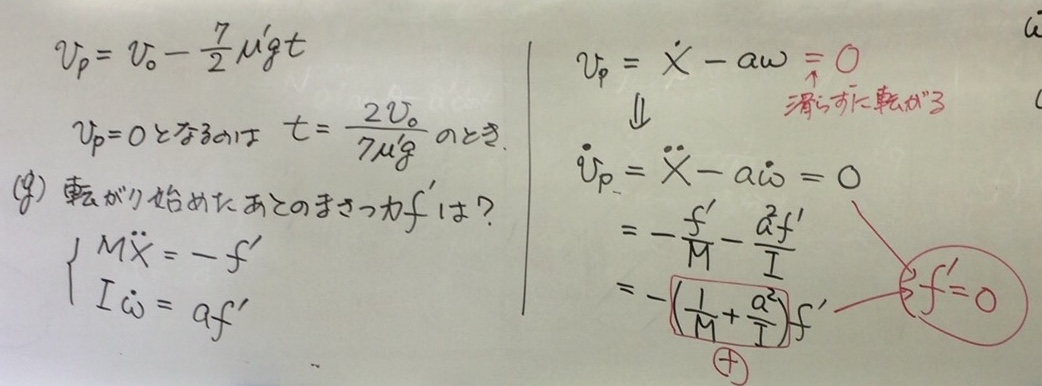 v_p = v₀ - 7/2 μ'gt
v_p = 0 となるのは t = 2v₀/7μ'g のとき.
(g) 転がり始めたあとのまさつ力 f' は?
MẌ = -f'
Iω̇ = af'
v_p = Ẋ - aω = 0
↑
滑らずに転がる
⇓
v̇_p = Ẍ - aω̇ = 0
= - f'/M - a²f'/I
= - (1/M + a²/I) f'
⊕
f' = 0